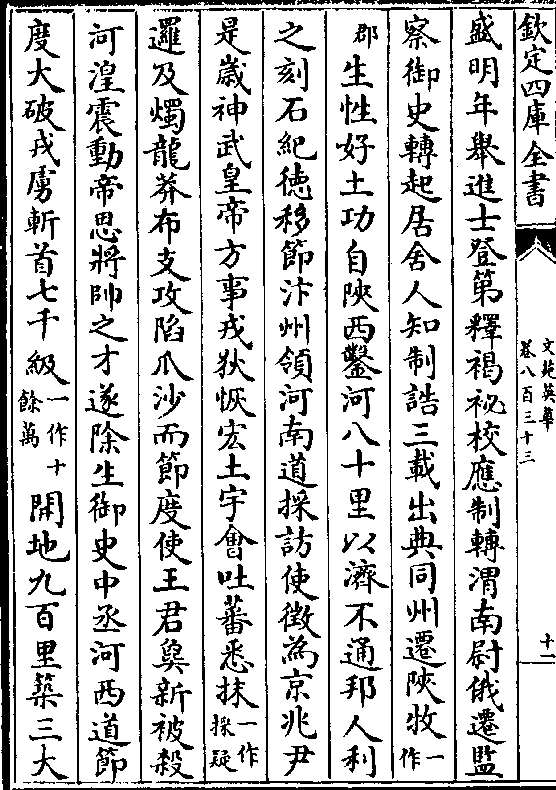 欽定四庫全書
文苑英華
卷八百三十三
十一
盛明年舉進士登第釋褐祕校應制轉渭南尉俄遷監
察御史轉起居舍人知制誥三載出典同州遷陝牧一作
郡生性好土功自陝西鑿河八十里以濟不通邦人利
之刻石紀德移節汴州領河南道採訪使徵為京兆尹
是歲神武皇帝方事戎狄恢宏土宇會吐蕃悉抹一作採疑
邏及燭龍莽布支攻陷爪沙而節度使王君㚟新被殺
河湟震動帝思將帥之才遂除生御史中丞河西道節
度大破戎虜斬首七千級一作十餘萬開地九百里築三大